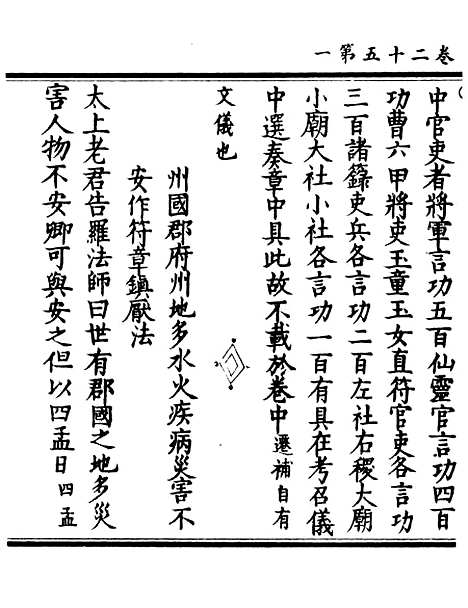 卷二十五第一
中官吏者將軍言功五百仙靈官言功四百
功曹六甲將吏玉童玉女直符官吏各言功
三百諸籙吏兵各言功二百左社右稷大廟
小廟大社小社各言功一百有具在考召儀
中選奏章中具此故不載於卷中遷補自有
文儀也
州國郡府州地多水火疾病災害不
安作符章鎮厭法
太上老君告羅法師曰世有郡國之地多災
害人物不安卿可與安之但以四孟日四孟